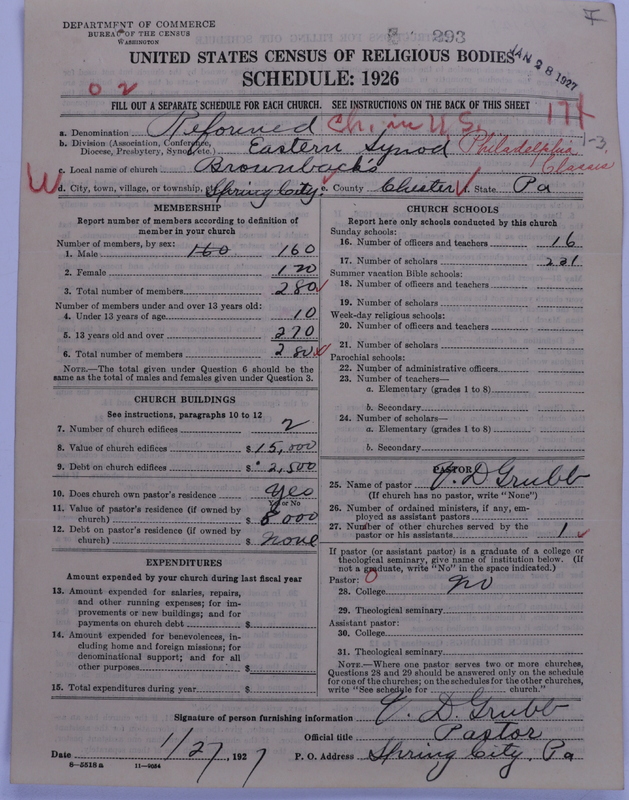 DEPARTMENT OF COMMERCE
BUREAU OF THE CENSUS
WASHINGTON
293
JAN 28 1927
UNITED STATES CENSUS OF RELIGIOUS BODIES
SCHEDULE: 1926
0 2
FILL OUT A SEPARATE SCHEDULE FOR EACH CHURCH. SEE INSTRUCTIONS ON THE BACK OF THIS SHEET
a. Denomination Reformed Ch. in U.S.
b. Division (Association, Conference, Diocese, Presbytery, Synod, etc.) Eastern Synod Philadelphia Classis
c. Local name of church Brownback's
W
d. City, town, village, or township, Spring City. e. County Chester f. State Pa
MEMBERSHIP
Report number of members according to definition of
member in your church
Number of members, by sex:
1. Male 160 160
2. Female 120
3. Total number of members 280
Number of members under and over 13 years old:
4. Under 13 years of age 10
5. 13 years old and over 270
6. Total number of members 280
NOTE.—The total given under Question 6 should be the
same as the total of males and females given under Question 3.
CHURCH BUILDINGS
See instructions, paragraphs 10 to 12
7. Number of church edifices 2
8. Value of church edifices $ 15,000
9. Debt on church edifices $ 2,500
10. Does church own pastor's residence Yes
Yes or No
11. Value of pastor's residence (if owned by
church) $ 8 000
12. Debt on pastor's residence (if owned by
church) $ none
EXPENDITURES
Amount expended by your church during last fiscal year
13. Amount expended for salaries, repairs,
and other running expenses; for im-
provements or new buildings; and for
payments on church debt $
14. Amount expended for benevolences, in-
cluding home and foreign missions; for
denominational support; and for all
other purposes $
15. Total expenditures during year $
CHURCH SCHOOLS
Report here only schools conducted by this church
Sunday schools:
16. Number of officers and teachers 16
17. Number of scholars 221
Summer vacation Bible schools:
18. Number of officers and teachers
19. Number of scholars
Week-day religious schools:
20. Number of officers and teachers
21. Number of scholars
Parochial schools:
22. Number of administrative officers
23. Number of teachers—
a. Elementary (grades 1 to 8)
b. Secondary
24. Number of scholars—
a. Elementary (grades 1 to 8)
b. Secondary
PASTOR
25. Name of pastor V. D Grubb
(If church has no pastor, write "None")
26. Number of ordained ministers, if any, em-
ployed as assistant pastors
27. Number of other churches served by the
pastor or his assistants 1
If pastor (or assistant pastor) is a graduate of a college or
theological seminary, give name of institution below. (If
not a graduate, write "No" in the space indicated.)
Pastor: 0
28. College no
29. Theological seminary
Assistant pastor:
30. College
31. Theological seminary
NOTE.—Where one pastor serves two or more churches,
Questions 28 and 29 should be answered only on the schedule
for one of the churches; on the schedules for the other churches,
write "See schedule for church."
Signature of person furnishing information V. D. Grubb
Official title Pastor
Date 1/27, 1927 P. O. Address Spring City, Pa
8—5518 a 11—9034